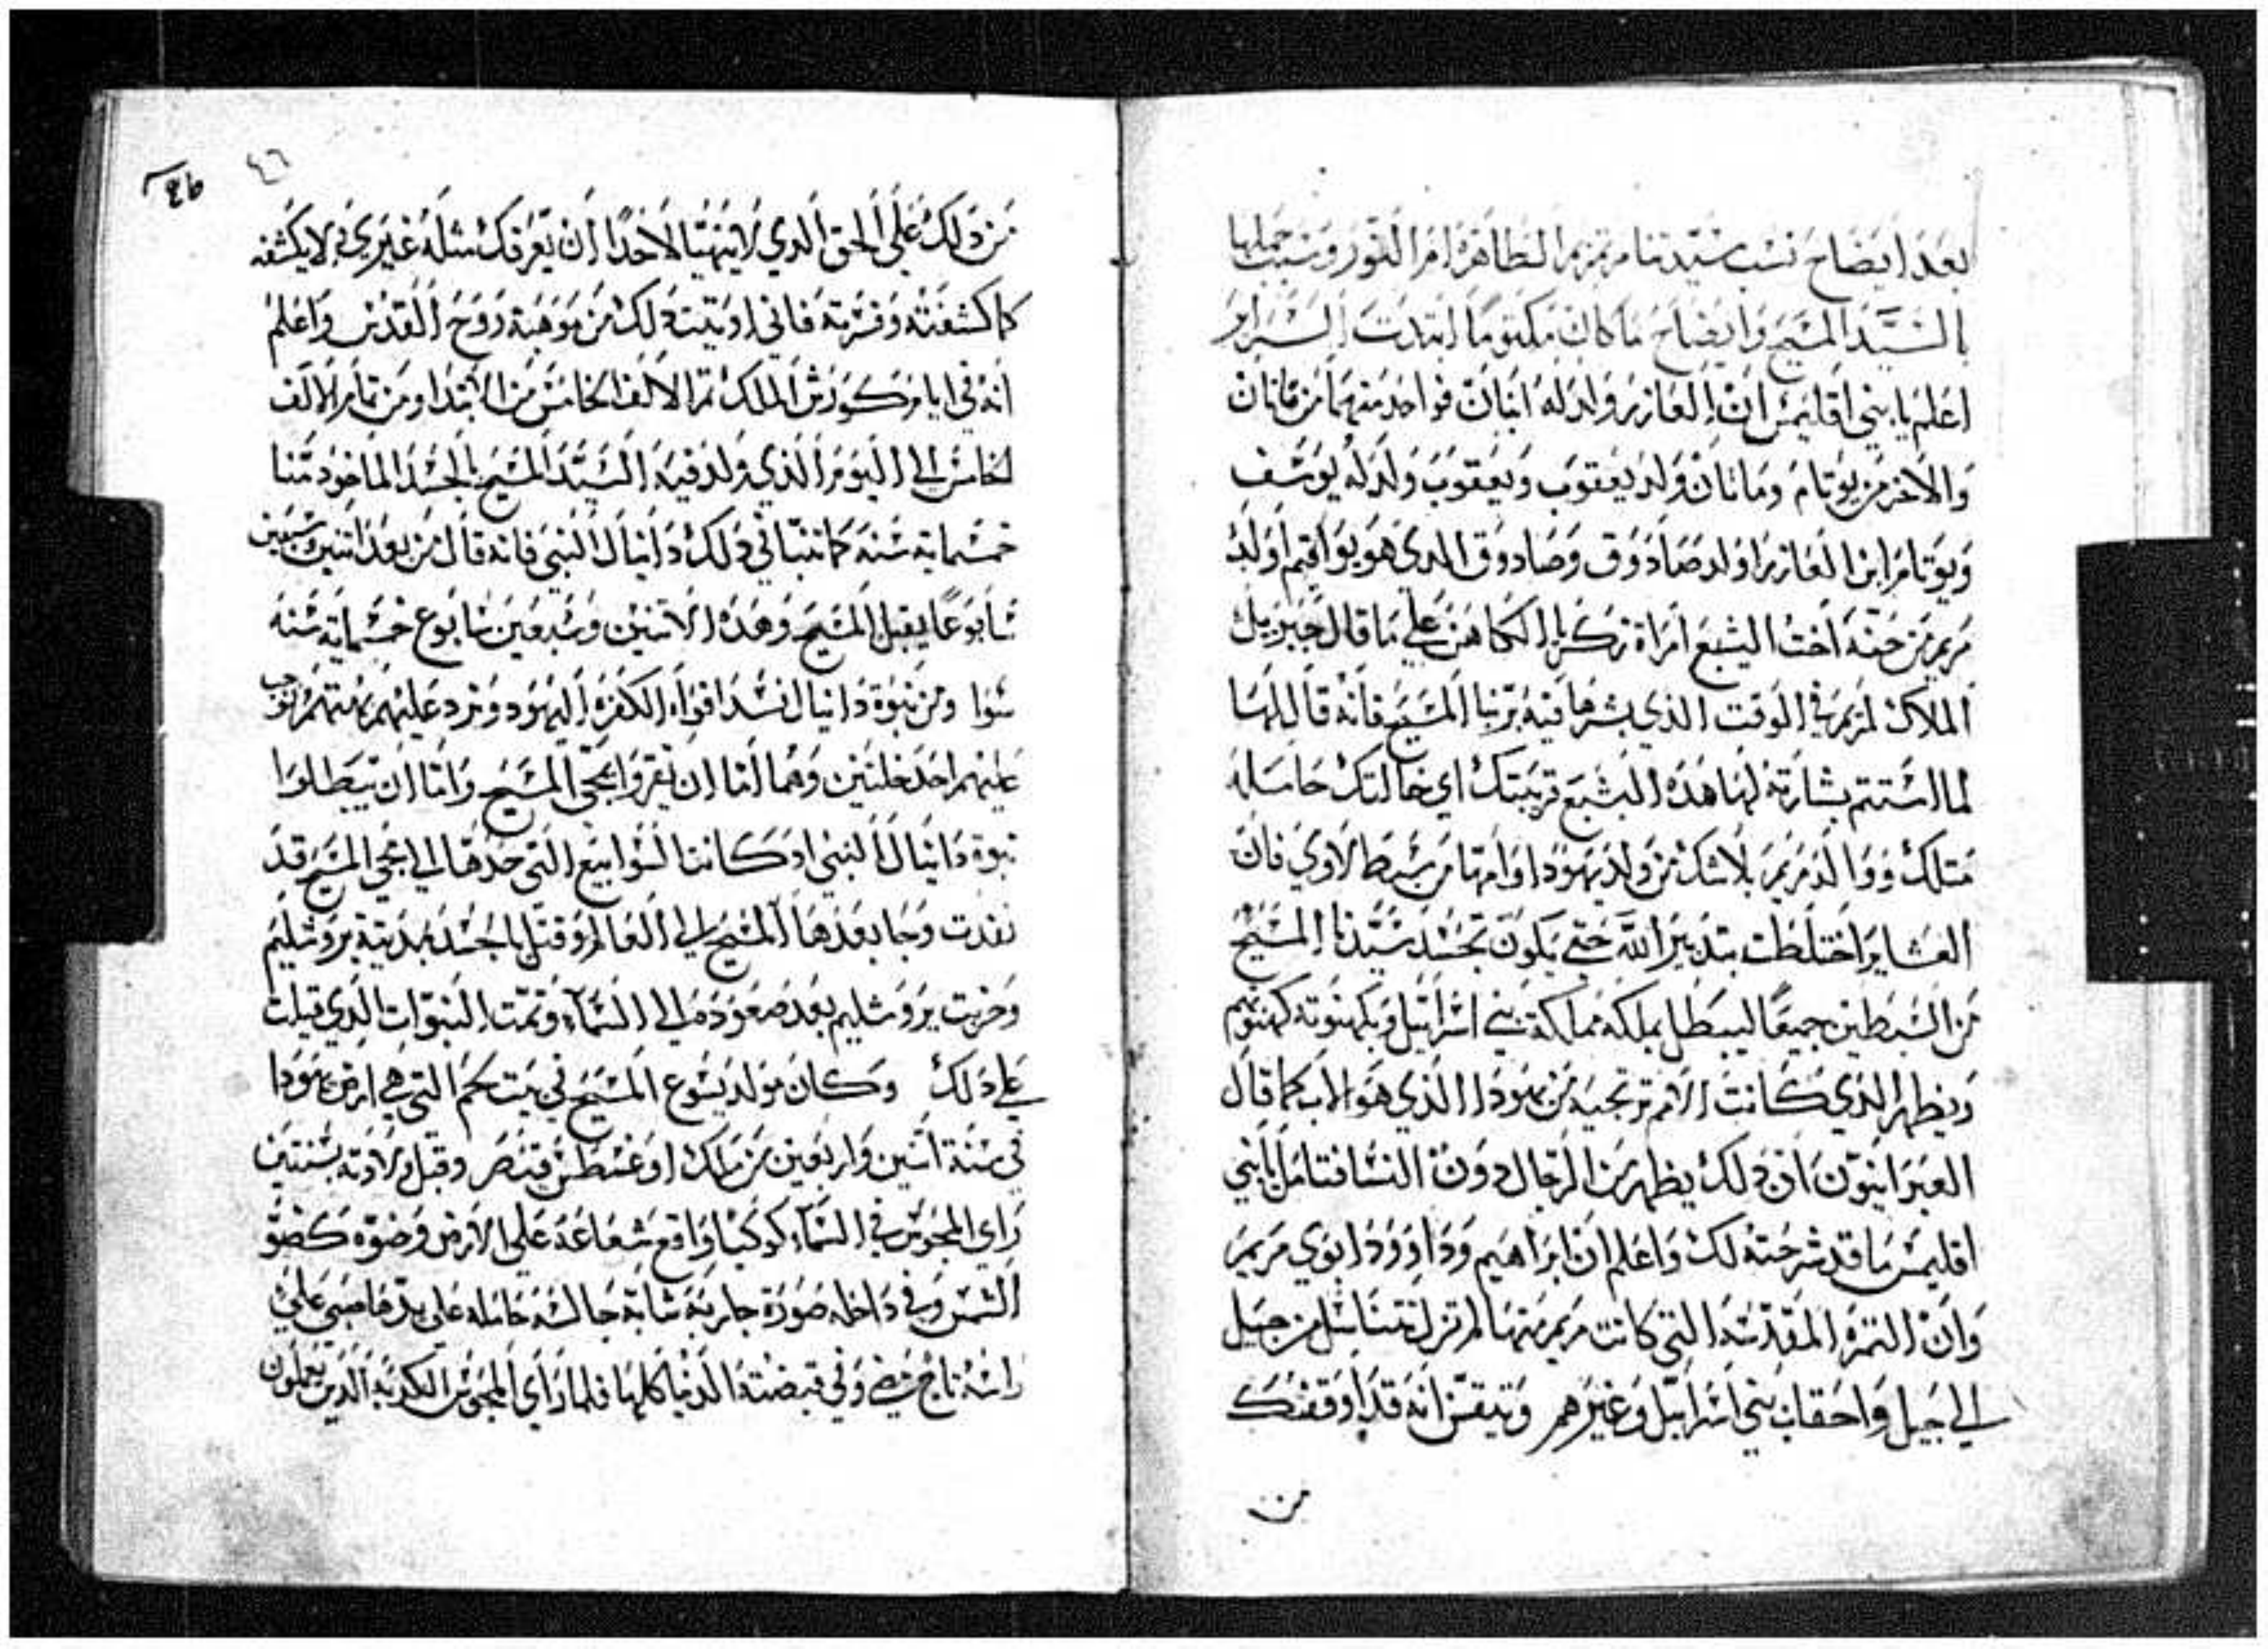 بعد ايضاح نسب ستيدتنا مرتمريم الطاهرة ام النور وسبب حملها
بالسيد المسيح وايضاح ما كان مكتوما ابتدت السراير
اعلم يا بني اقليمس ان العازر ولد له ابنان فواحد منهما من ماتان
والاخر من يوتام وماتان ولد يعقوب ويعقوب ولد له يوسف
ويوتام ابن العازر اولد صادوق وصادوق الذي هو يواقيم اولد
مريم من حنه اخت اليشبع امراة زكريا الكاهن علي ما قال جبريل
الملاك لمريم في الوقت الذي بشرها فيه بربنا المسيح فانه قال لها
لما استتم بشارته لها هذه اليشبع قريبتك اي خالتك حامله
مثلك ووالد مريم بلا شك من ولد يهودا وامها من سبط لاوي فان
العشاير اختلطت بتدبير الله حتي يكون تجسد سيدنا المسيح
من السبطين جميعا ليبطل بملكه مملكة بني اسرائيل وبكهنوته كهنوتهم
ويظهر الذي كانت الامم ترتجيه من يهودا الذي هو الاب كما قال
العبرانيون ان ذلك يظهر من الرجال دون النسا فتامل يا بني
اقليمس ما قد شرحته لك واعلم ان ابراهيم وداوود ابوي مريم
وان الثمره المقدسه التي كانت مريم منها لم تزل تتناسل من جيل
الي جيل واحقاب بني اسرائيل وغيرهم وتيقن انه قد اوقفتك
من
٤٦
من ذلك علي الحق الذي لا يتهيا لاحدا ان يعرفك مثله غيري ولا يكشفه
كما كشفته وفسرته فاني اوتيت ذلك من موهبة روح القدس واعلم
انه في ايام كورش الملك تم الالف الخامس من الابتدا ومن تمام الالف
الخامس الي اليوم الذي ولد فيه السيد المسيح بالجسد الماخوذ منا
خمسماية سنه كما تنبا في ذلك دانيال النبي فانه قال من بعد اثنين وسبعين
سابوعا يقبل المسيح وهذه الاثنين وسبعين سابوع خمسماية سنه
سوا ومن نبوة دانيال انسد افواه الكفره اليهود ونرد عليهم بهتتهم لوجب
عليهم احد خلتين وهما اما ان يقروا بمجي المسيح واما ان يبطلوا
نبوة دانيال النبي اذ كانت السوابيع التي حدها الي مجي المسيح قد
نفدت وجا بعدها المسيح الي العالم وقتل بالجسد بمدينة يروشليم
وخربت يروشليم بعد صعوده الي السماء وتمت النبوات الذي قيلت
علي ذلك وكان مولد يشوع المسيح في بيت لحم التي هي ارض يهودا
في سنة اثنين واربعين من ملك اوغسطس قيصر وقبل ولادته بسنتين
راي المجوس في السماء كوكبا واقع شعاعه علي الارض وضوه كضو
الشمس وفي داخله صورة جاريه شابه جالسه حامله علي يدها صبي علي
راسه تاج مضي وفي قبضته الدنيا كلها فلما راي المجوس الكدبه الذين يعملون